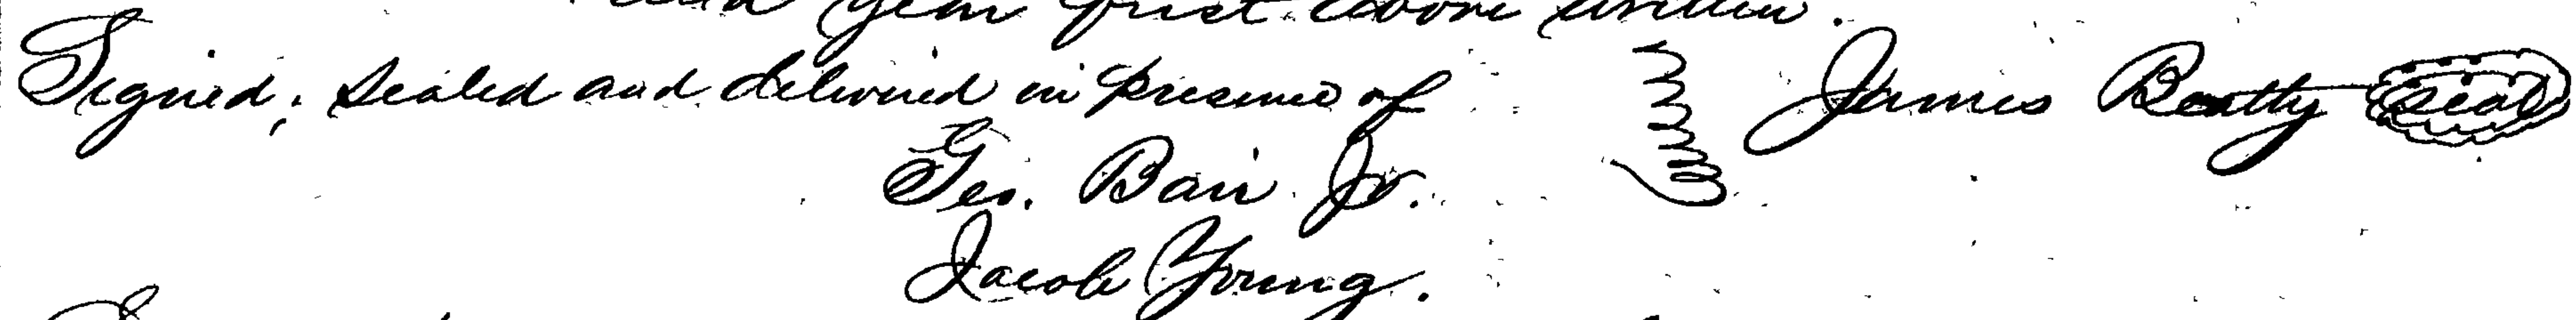 and year first above written.
Signed, sealed and delivered in presence of James Beatty seal
Geo. Bair Jr.
Jacob Young.